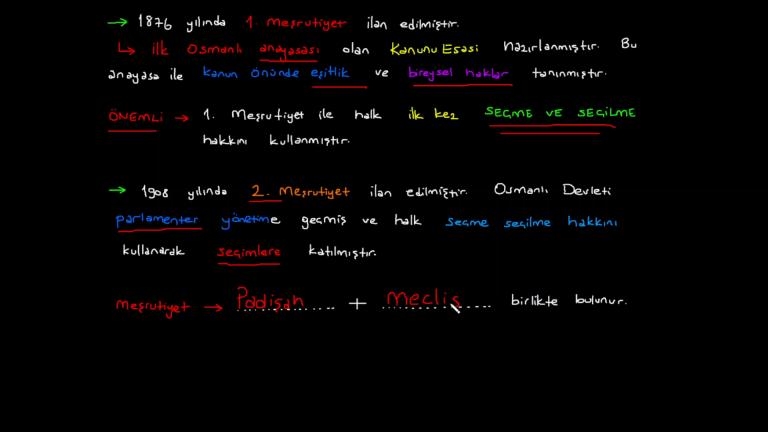 → 1876 yılında 1. Meşrutiyet ilan edilmiştir.
↳ İlk Osmanlı anayasası olan Kanunu Esasi hazırlanmıştır. Bu
anayasa ile kanun önünde eşitlik ve bireysel haklar tanınmıştır.
ÖNEMLİ → 1. Meşrutiyet ile halk ilk kez SEÇME VE SEÇİLME
hakkını kullanmıştır.
→ 1908 yılında 2. Meşrutiyet ilan edilmiştir. Osmanlı Devleti
parlamenter yönetime geçmiş ve halk seçme seçilme hakkını
kullanarak seçimlere katılmıştır.
Meşrutiyet → Padişah + meclis birlikte bulunur.